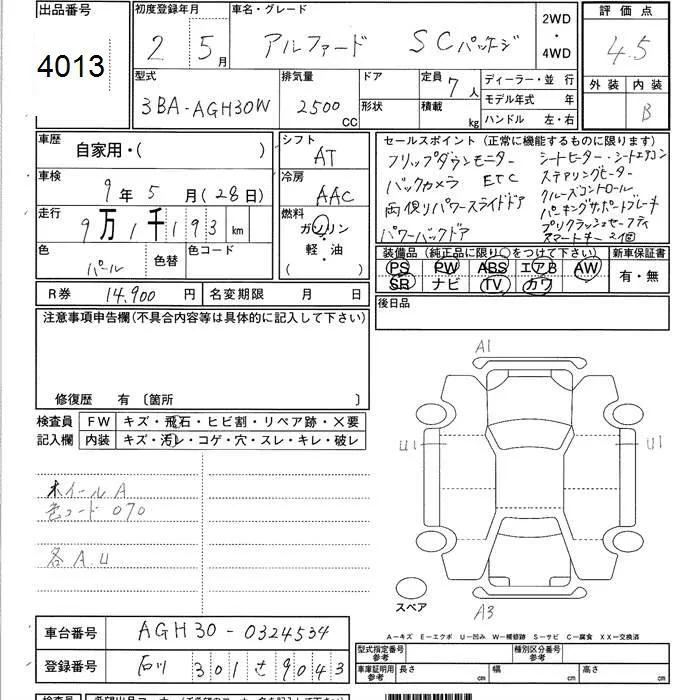 出品番号
4013
初度登録年月
2 5月
車名・グレード
アルファード SCパッケージ
2WD
・
4WD
評価点
4.5
外装 内装
B
型式
3BA-AGH30W
排気量
2500 CC
ドア
形状
定員 7人
積載 kg
ディーラー・並 行
モデル年式 年
ハンドル 左・右
車歴
自家用・( )
車検
9年 5月(28日)
走行
9万1千193 km
色
パール
色替
色コード
シフト
AT
冷房
AAC
燃料
ガソリン
・
軽・油
( )
セールスポイント (正常に機能するものに限ります)
フリップダウンモニター シートヒーター・シートエアコン
バックカメラ ETC ステアリングヒーター
両側パワースライドドア クルーズコントロール
パーキングサポートブレーキ
パワーバックドア プリクラッシュセーフティ
スマートキー2個
装備品 (純正品に限り○をつけて下さい)
PS PW ABS エアB AW
SR ナビ TV カワ
新車保証書
有・無
後日品
R券 14,900円 名変期限 月 日
注意事項申告欄(不具合内容等は具体的に記入して下さい)
修復歴 有 〔箇所 〕
検査員
記入欄
FW キズ・飛石・ヒビ割・リペア跡・×要
内装 キズ・汚レ・コゲ・穴・スレ・キレ・破レ
ホイールA
色コード 070
各A.U
A1
U1
U1
A3
スペア
A-キズ E-エクボ U-凹み W-補修跡 S-サビ C-腐食 XX-交換済
車台番号 AGH30-0324534
登録番号 石川 301 さ 9043
型式指定番号
参考
種別区分番号
参考
車庫証明用
参考
長さ cm 幅 cm 高さ cm